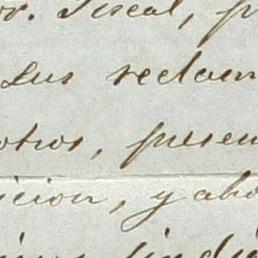 or. Fiscal, p
sus reclam
otros, presen
icion, y abo